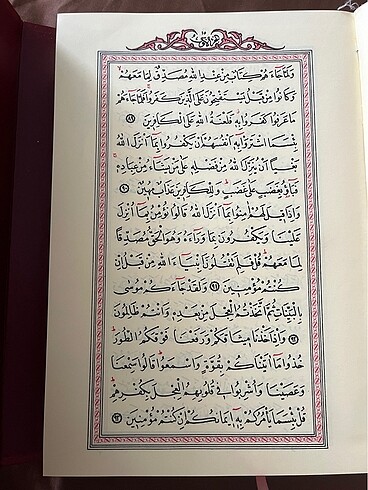 وَلَمَّا جَاءَهُمْ كِتَابٌ مِنْ عِنْدِ اللهِ مُصَدِّقٌ لِمَا مَعَهُمْ
وَكَانُوا مِنْ قَبْلُ يَسْتَفْتِحُونَ عَلَى الَّذِينَ كَفَرُوا فَلَمَّا جَاءَهُمْ
مَا عَرَفُوا كَفَرُوا بِهِ فَلَعْنَةُ اللهِ عَلَى الْكَافِرِينَ ٨٩
بِئْسَمَا اشْتَرَوْا بِهِ اَنْفُسَهُمْ اَنْ يَكْفُرُوا بِمَا اَنْزَلَ اللهُ
بَغْيًا اَنْ يُنَزِّلَ اللهُ مِنْ فَضْلِهِ عَلَى مَنْ يَشَاءُ مِنْ عِبَادِهِ
فَبَاؤُ بِغَضَبٍ عَلَى غَضَبٍ وَلِلْكَافِرِينَ عَذَابٌ مُهِينٌ ٩٠
وَاِذَا قِيلَ لَهُمْ اٰمِنُوا بِمَا اَنْزَلَ اللهُ قَالُوا نُؤْمِنُ بِمَا اُنْزِلَ
عَلَيْنَا وَيَكْفُرُونَ بِمَا وَرَاءَهُ وَهُوَ الْحَقُّ مُصَدِّقًا
لِمَا مَعَهُمْ قُلْ فَلِمَ تَقْتُلُونَ اَنْبِيَاءَ اللهِ مِنْ قَبْلُ اِنْ
كُنْتُمْ مُؤْمِنِينَ ٩١ وَلَقَدْ جَاءَكُمْ مُوسَى
بِالْبَيِّنَاتِ ثُمَّ اتَّخَذْتُمُ الْعِجْلَ مِنْ بَعْدِهِ وَاَنْتُمْ ظَالِمُونَ
٩٢ وَاِذْ اَخَذْنَا مِيثَاقَكُمْ وَرَفَعْنَا فَوْقَكُمُ الطُّورَ
خُذُوا مَا اٰتَيْنَاكُمْ بِقُوَّةٍ وَاسْمَعُوا قَالُوا سَمِعْنَا
وَعَصَيْنَا وَاُشْرِبُوا فِي قُلُوبِهِمُ الْعِجْلَ بِكُفْرِهِمْ
قُلْ بِئْسَمَا يَأْمُرُكُمْ بِهِ اِيمَانُكُمْ اِنْ كُنْتُمْ مُؤْمِنِينَ ٩٣